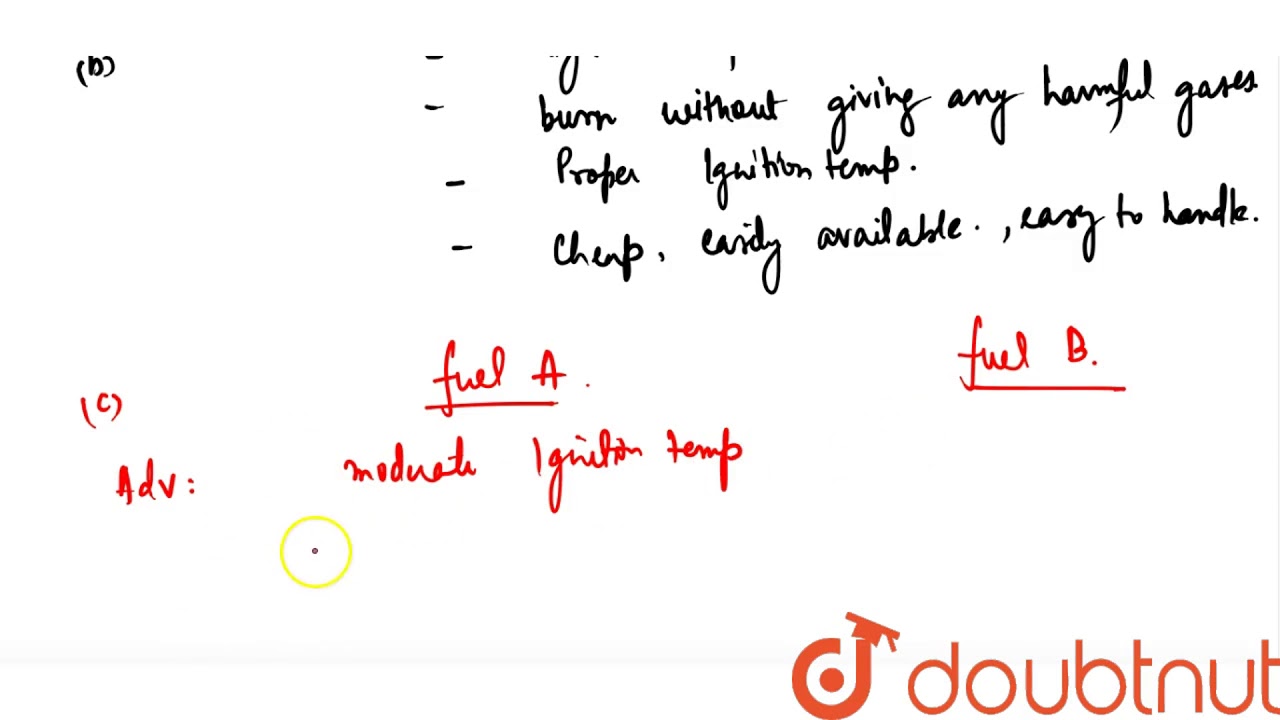 (b)
- burn without giving any harmful gases
- Proper Ignition temp.
- Cheap, easily available., easy to handle.
fuel A. fuel B.
(c)
Adv: moderate Ignition temp
doubtnut